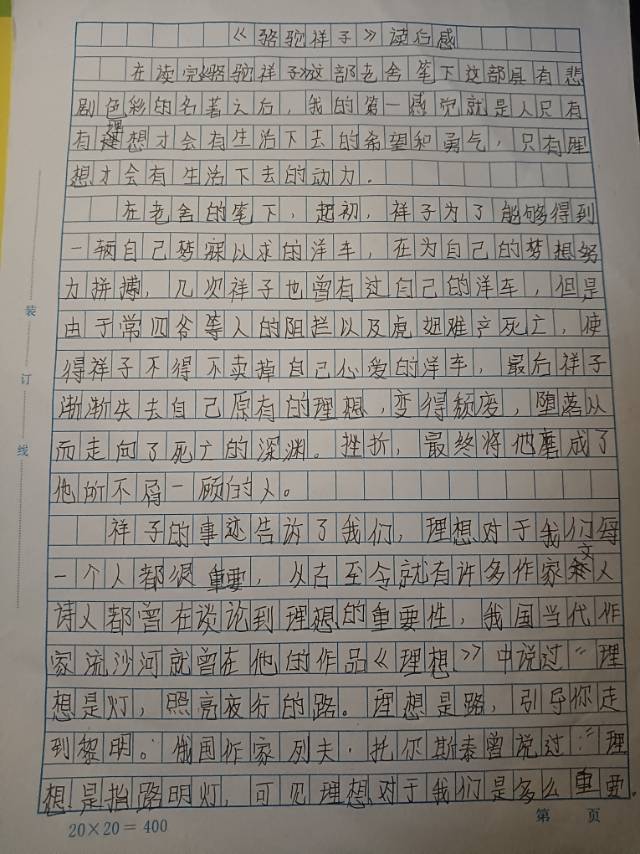 《骆驼祥子》读后感
在读完《骆驼祥子》这部老舍笔下这部具有悲
剧色彩的名著之后，我的第一感觉就是人只有
有理想才会有生活下去的希望和勇气，只有理
想才会有生活下去的动力．
在老舍的笔下，起初，祥子为了能够得到
一辆自己梦寐以求的洋车，在为自己的梦想努
力拼搏，几次祥子也曾有过自己的洋车，但是
由于常四爷等人的阻拦以及虎妞难产死亡，使
得祥子不得不卖掉自己心爱的洋车，最后祥子
渐渐失去自己原有的理想，变得颓废，堕落从
而走向了死亡的深渊。挫折，最终将他磨成了
他所不屑一顾的人。
祥子的事迹告诉了我们，理想对于我们每
一个人都很重要，从古至今就有许多作家文人
诗人都曾在谈论到理想的重要性，我国当代作
家流沙河就曾在他的作品《理想》中说过“理
想是灯，照亮夜行的路。理想是路，引导你走
到黎明。俄国作家列夫·托尔斯泰曾说过：“理
想是指路明灯，可见理想对于我们是多么重要．
装
订
线
20×20=400
第 页